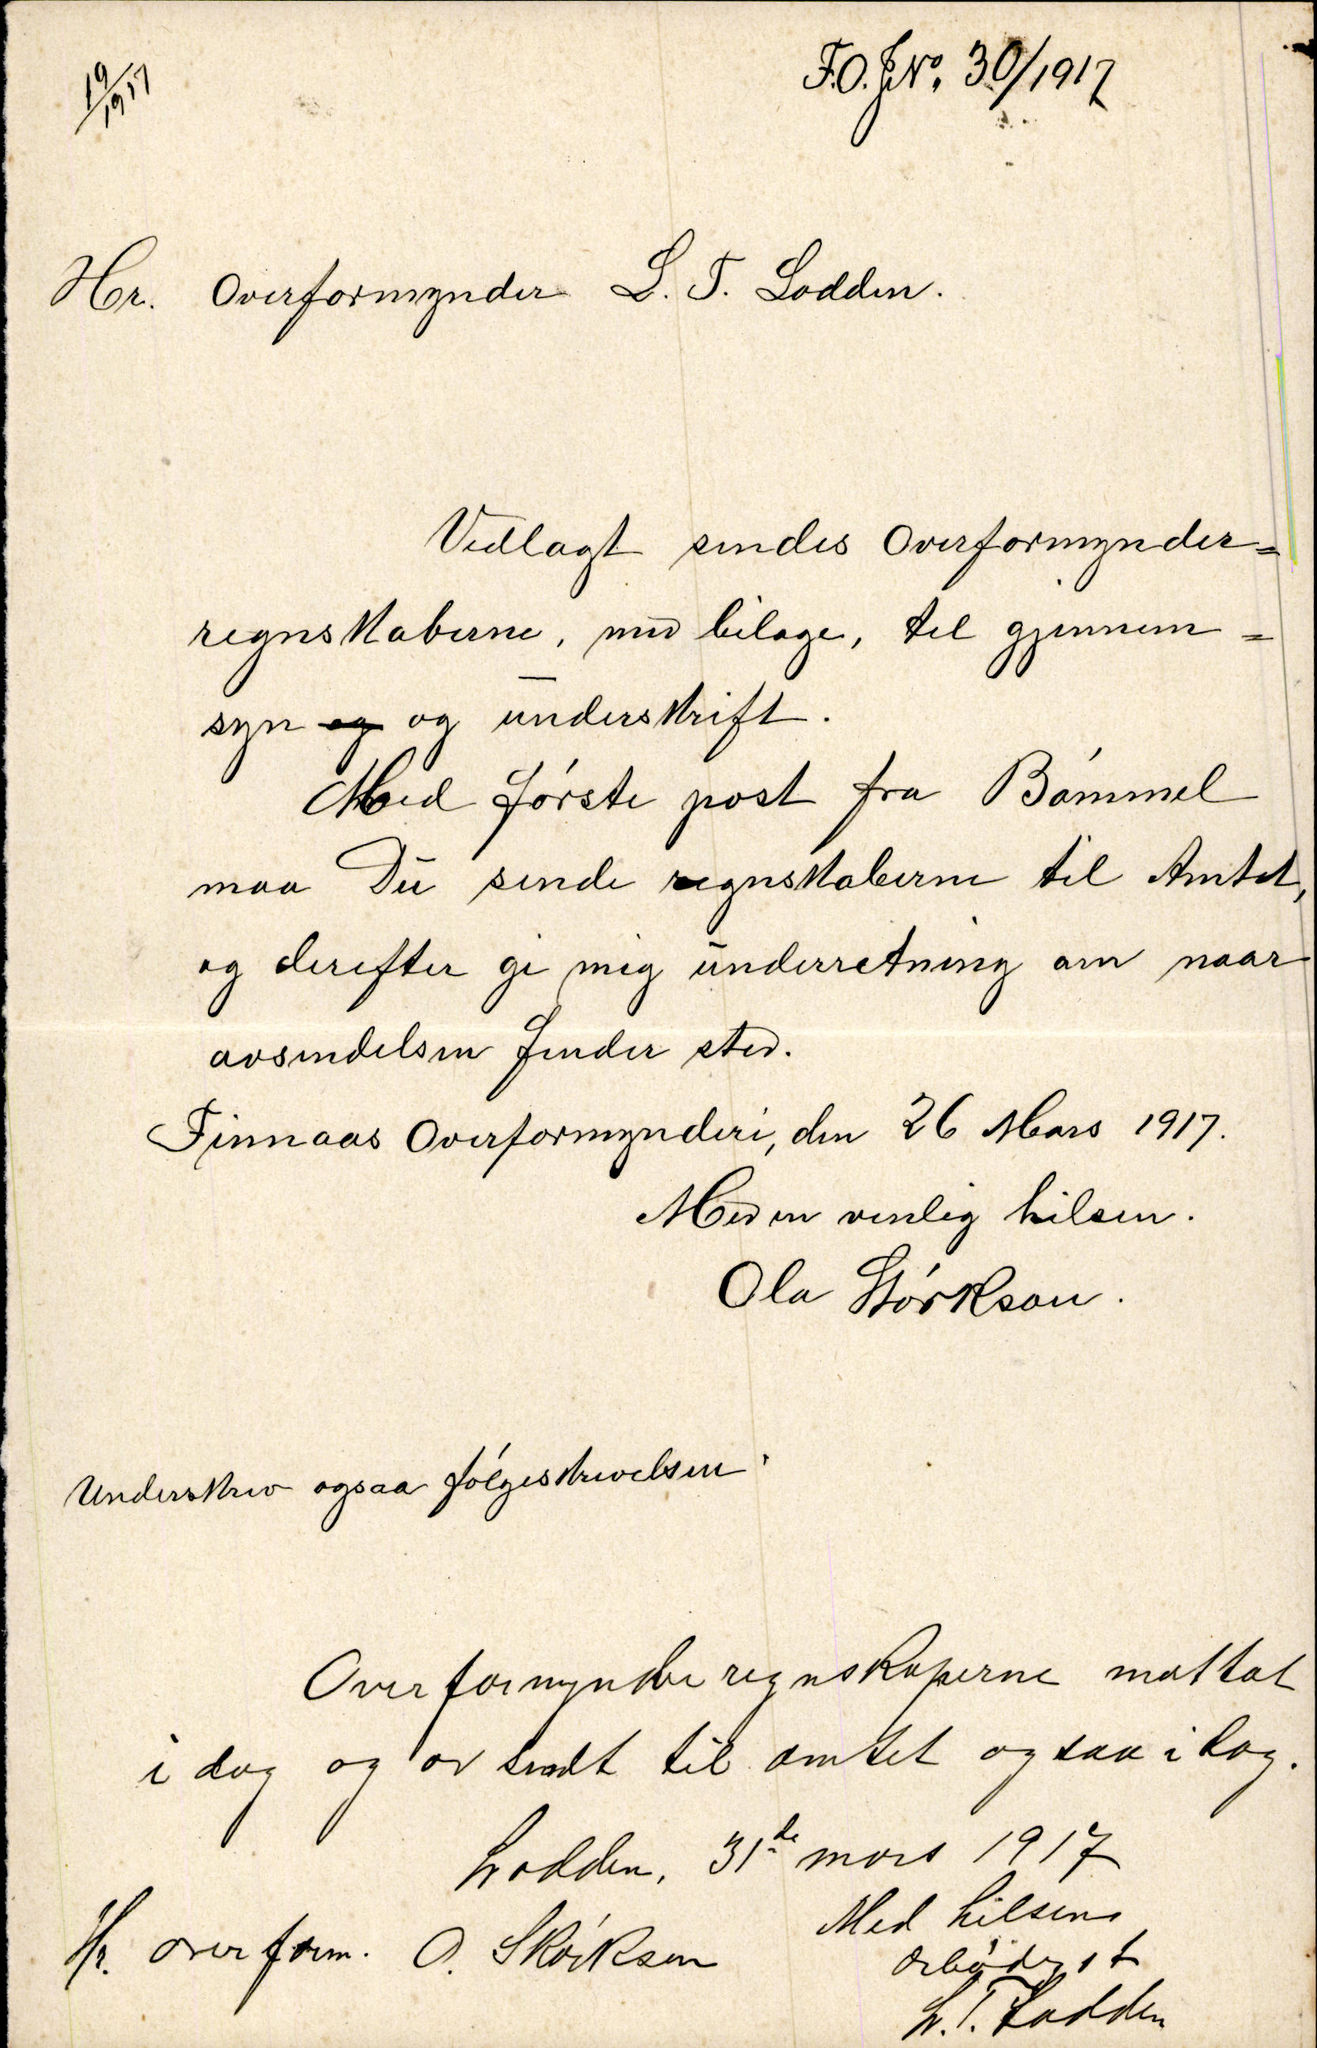 19/1917
F.O.J.No. 30/1917
Hr. Overformynder L. T. Lodden.
Vedlagt sendes Overformynder=
regnskaberne, med bilage, til gjennem=
syn og og underskrift.
Med første post fra Bømmel
maa Du sende regnskaberne til Amtet,
og derefter gi mig underretning om naar
avsendelsen finder sted.
Finnaas Overformynderi, den 26 Mars 1917.
Med en venlig hilsen.
Ola Størkson.
Underskriv ogsaa følgeskrivelsen.
Overformynderregnskaperne mottat
i dag og avsendt til amtet ogsaa i dag.
Lodden, 31de mars 1917
Med hilsen
Hr. overform. O. Størksen
ærbødigst
L. T. Lodden